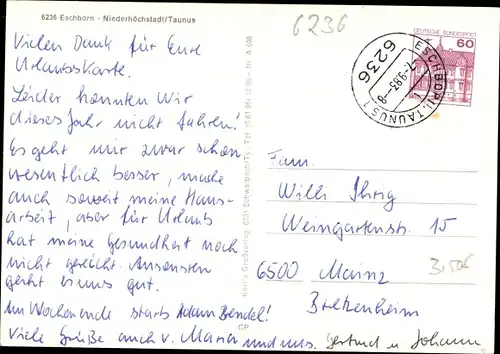 6236 Eschborn - Niederhöchstadt/Taunus
6236
Vielen Dank für Eure
Urlaubskarte.
Leider konnten Wir
dieses Jahr nicht fahren!
Es geht mir zwar schon
wesentlich besser, mache
auch soweit meine Haus-
arbeit, aber für Urlaub
hat meine Gesundheit noch
nicht gereicht. Ansonsten
geht es uns gut.
Am Wochenende starb Adam Bendel!
Viele Grüße auch v. Maria und uns. Gertrud u Johann
CP
DEUTSCHE BUNDESPOST
60
ESCHBORN, TAUNUS 1
-7.-9.83.-8
6236
Fam.
Willi Ihrig
Weingartenstr. 15
6500 Mainz
Bretzenheim